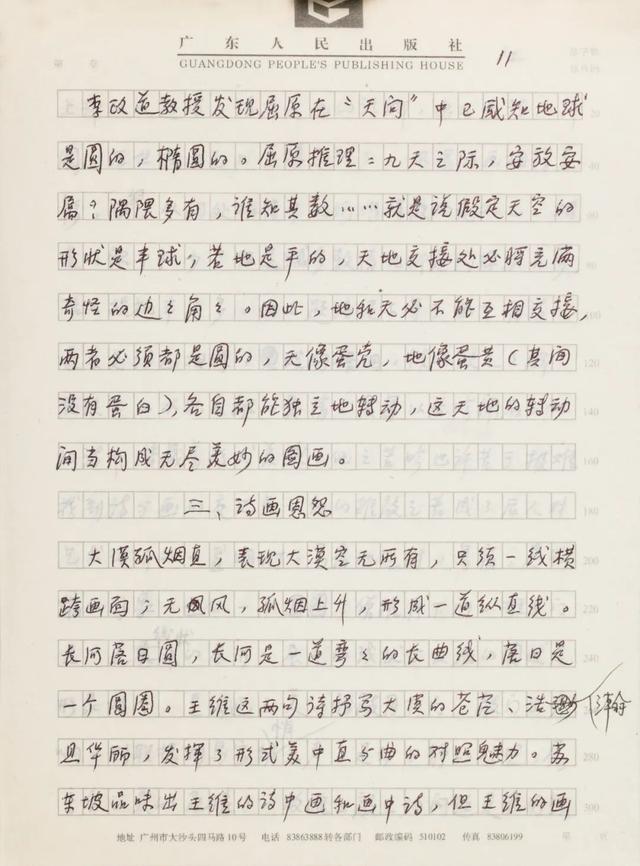 广东人民出版社
GUANGDONG PEOPLE'S PUBLISHING HOUSE
11
李政道教授发现屈原在“天问”中已感知地球
是圆的，椭圆的。屈原推理：九天之际，安放安
属？隅隈多有，谁知其数……就是说假定天空的
形状是半球，若地是平的，天地交接处必将充满
奇怪的边々角々。因此，地和天必不能互相交接，
两者必须都是圆的，天像蛋壳，地像蛋黄（其间
没有蛋白），各自都能独立地转动，这天地的转动
间当构成无尽美妙的图画。
三、诗画恩怨
大漠孤烟直，表现大漠空无所有，只须一线横
跨画面；无风，孤烟上升，形成一道纵直线。
长河落日圆，长河是一道弯々的长曲线，落日是
一个圆圈。王维这两句诗抒写大漠的苍茫、浩瀚
且华丽，发挥了形式美中直与曲的对照魅力。苏
东坡品味出王维的诗中画和画中诗，但王维的画
地址 广州市大沙头四马路10号 电话 83863888转各部门 邮政编码 510102 传真 83806199